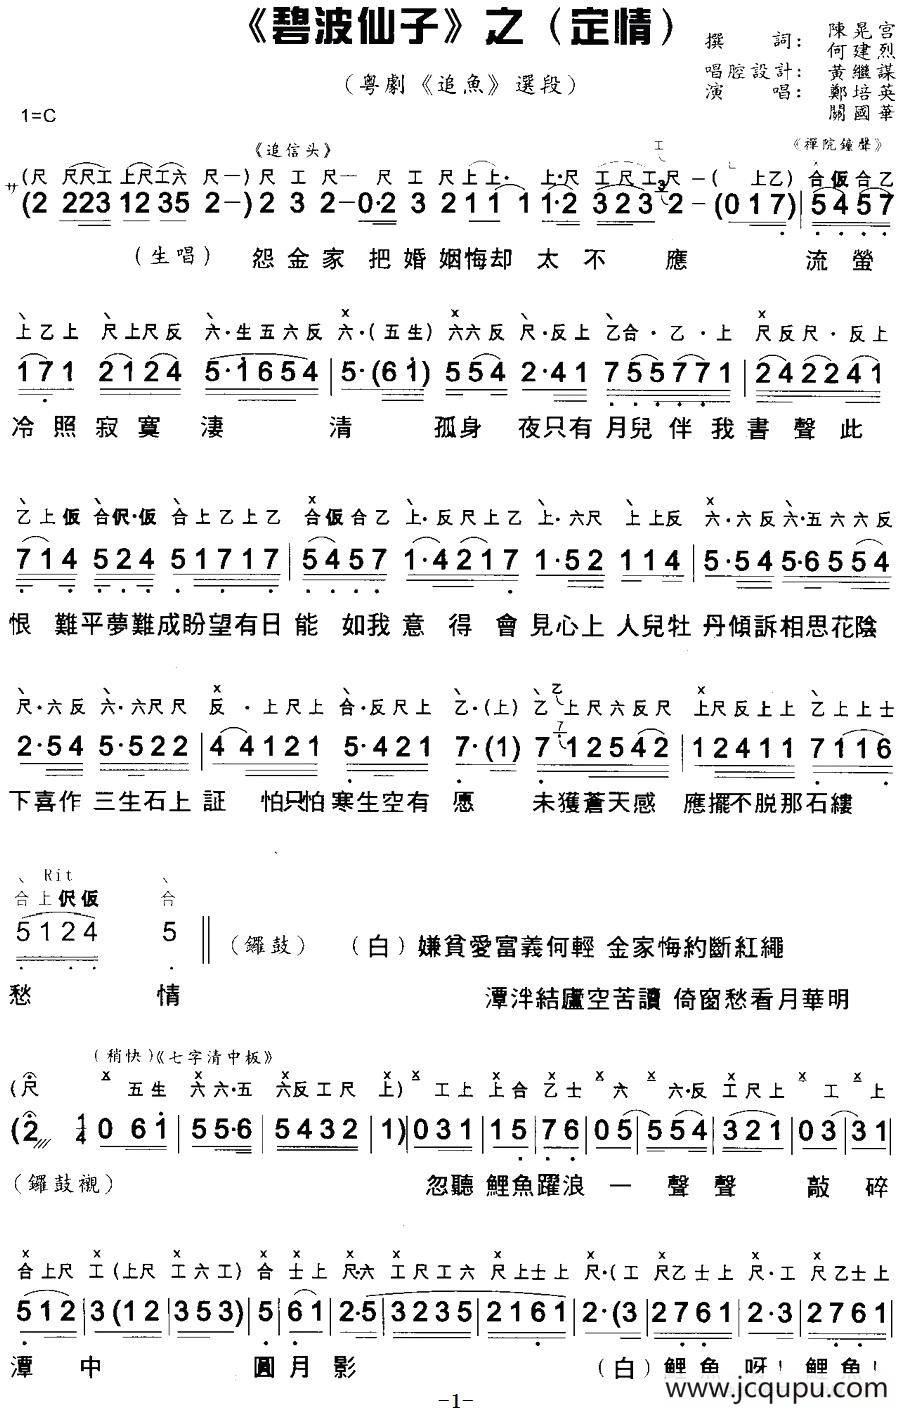 《碧波仙子》之（定情）
撰 詞：陳晃宮
何建烈
（粤劇《追魚》選段）
唱腔設計：黃繼謀
演 唱：鄭培英
關國華
1=C
《追信头》 工 《禪院鐘聲》
サ (尺 尺尺工 上尺工六 尺—) 尺 工 尺— 尺 工 尺上上· 上·尺 工 尺 工 尺 —( 上乙) 合仮合乙
(2 223 1235 2-) 2 3 2-0·2 3 211 1 1·2 323 2-(017) | 5457
（生唱） 怨金家 把婚姻悔却 太 不 應 流 螢
上乙上 尺上尺反 六·生五六反 六·(五生) 六六反 尺·反上 乙合·乙·上 尺反尺·反上
171 2124 5·1654 | 5·(61) 554 2·41 755771 | 242241
冷照寂寞淒 清 孤身 夜只有月兒伴我書聲此
乙上仮 合伬·仮 合上乙上乙 合仮合乙 上·反尺上乙 上·六尺 上上反 六·六反 六·五六六反
714 524 51717 | 5457 1·4217 1·52 114 | 5·54 5·6554
恨 難平夢難成盼望有日能 如我意得會見心上人兒牡丹傾訴相思花陰
尺·六反 六·六尺尺 反·上尺上 合·反尺上 乙·(上) 乙 乙上尺六反尺 上尺反上上 乙上上士
2·54 5·522 | 4 4121 5·421 7·(1) 7 12542 | 12411 7116
下喜作 三生石上証 怕只怕寒生空有愿 未獲蒼天感 應擺不脱那石縷
Rit
合上伬仮 合
5124 5 ‖ （鑼鼓） （白）嫌貧愛富義何輕 金家悔約斷紅繩
愁 情 潭泮結廬空苦讀 倚窗愁看月華明
（稍快）《七字清中板》
(尺 五生 六六·五 六反工尺 上) 工上 上合 乙士 六 六·反 工尺上 工 上
(2 1/4 0 61 | 55·6 | 5432 | 1) | 031 | 15 | 76 | 05 | 554 | 321 | 03 | 31
（鑼鼓襯） 忽聽鯉魚躍浪一聲聲 敲碎
合上尺 工(上尺 工六工) 合 士上 尺·六 工尺工六 尺上士上 尺·(工 尺乙士上 尺·工 尺乙士上
512 | 3(12 | 353) | 5 | 61 | 2·5 | 3235 | 2161 | 2·(3 | 2761 | 2·3 | 2761
潭 中 圓月影 （白）鯉魚呀！鯉魚！
www.jcqupu.com
-1-